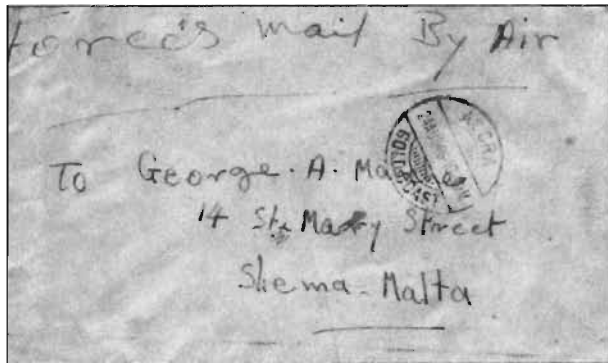 Force's mail By Air
ACCRA
GOLD COAST
To George. A.
14 St. Mary Street
Sliema - Malta